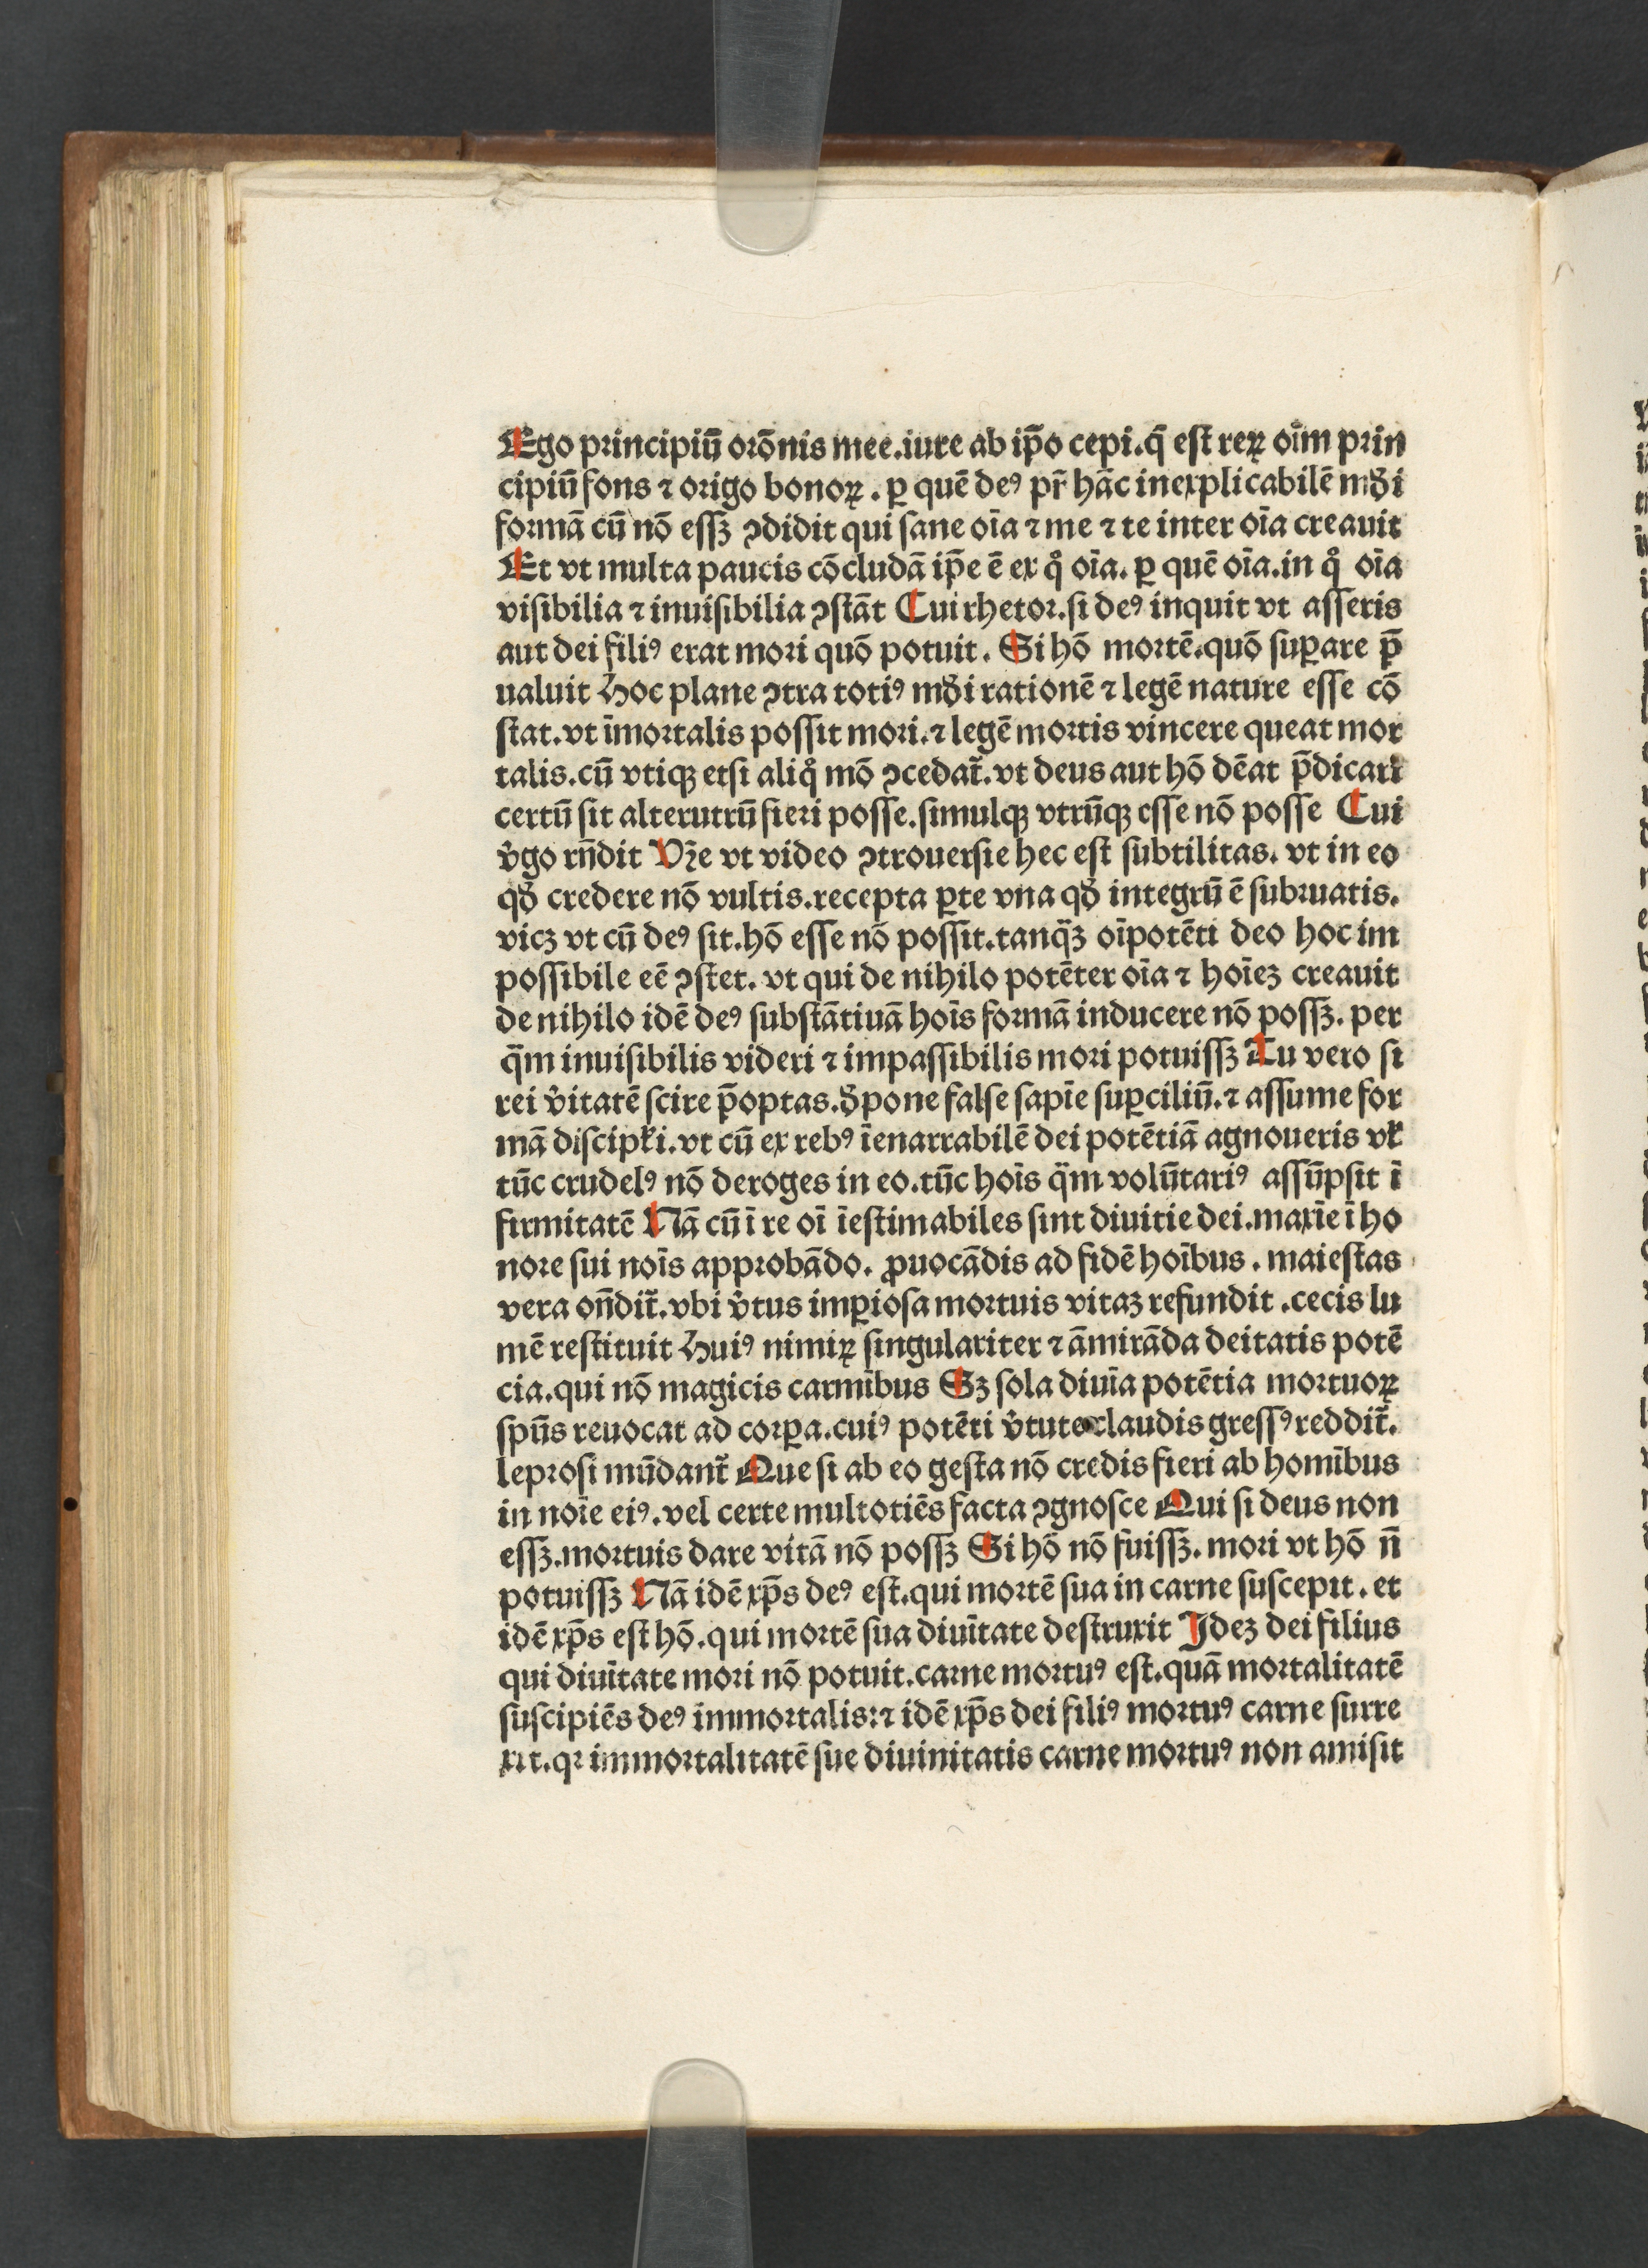 Ego principiū orōnis mee.iure ab ip̄o cepi.q̄ est reꝝ oīm prin
cipiū fons ⁊ origo bonoꝝ. ꝑ quē deꝰ pr̄ hāc inexplicabilē mūdi
formā cū nō essꝫ ꝯdidit qui sane oīa ⁊ me ⁊ te inter oīa creauit
Et vt multa paucis cōcludā ip̄e ē ex qͦ oīa. ꝑ quē oīa.in qͦ oīa
visibilia ⁊ inuisibilia ꝯstāt Cui rhetor.si deꝰ inquit vt asseris
aut dei filiꝰ erat mori quō potuit. Si hō mortē.quō suꝑare p̄
ualuit Hoc plane ꝯtra totiꝰ mūdi rationē ⁊ legē nature esse cō
stat.vt īmortalis possit mori.⁊ legē mortis vincere queat mor
talis.cū vtiqꝫ etsi aliqͦ mō ꝯcedat᷑.vt deus aut hō dēat p̄dicari
certū sit alterutrū fieri posse.simulqꝫ vtrūqꝫ esse nō posse Cui
v̓go rn̄dit Vr̄e vt video ꝯtrouersie hec est subtilitas. vt in eo
qd̓ credere nō vultis.recepta ꝑte vna qd̓ integrū ē subruatis.
vicꝫ vt cū deꝰ sit.hō esse nō possit.tanqᷓꝫ oīpotēti deo hoc im
possibile eē ꝯstet. vt qui de nihilo potēter oīa ⁊ hoīeꝫ creauit
de nihilo idē deꝰ substātiuā hoīs formā inducere nō possꝫ. per
qᷓm inuisibilis videri ⁊ impassibilis mori potuissꝫ Tu vero si
rei v̓itatē scire p̄optas.d̓pone false sapīe suꝑciliū.⁊ assume for
mā discipl̓i.vt cū ex rebꝰ īenarrabilē dei potētiā agnoueris vl̓
tūc crudelꝰ nō deroges in eo.tūc hoīs qᷓm volūtariꝰ assūpsit ī
firmitatē Nā cū ī re oī īestimabiles sint diuitie dei.maxīe ī ho
nore sui noīs approbādo. ꝓuocādis ad fidē hoībus. maiestas
vera on̄dit᷑.vbi v̓tus imꝑiosa mortuis vitaꝫ refundit .cecis lu
mē restituit Huiꝰ nimiꝝ singulariter ⁊ āmirāda deitatis potē
cia.qui nō magicis carmībus Sꝫ sola diuīa potētia mortuoꝝ
spūs reuocat ad corꝑa.cuiꝰ potēti v̓tute claudis gressꝰ reddit᷑.
leprosi mūdant᷑ Que si ab eo gesta nō credis fieri ab homībus
in noīe eiꝰ.vel certe multotiēs facta ꝯgnosce Qui si deus non
essꝫ.mortuis dare vitā nō possꝫ Si hō nō fuissꝫ. mori vt hō n̄
potuissꝫ Nā idē xp̄s deꝰ est.qui mortē sua in carne suscepit. et
idē xp̄s est hō.qui mortē sua diuītate destruxit Ideꝫ dei filius
qui diuītate mori nō potuit.carne mortuꝰ est.quā mortalitatē
suscipiēs deꝰ immortalis:⁊ idē xp̄s dei filiꝰ mortuꝰ carne surre
xit.qꝛ immortalitatē sue diuinitatis carne mortuꝰ non amisit